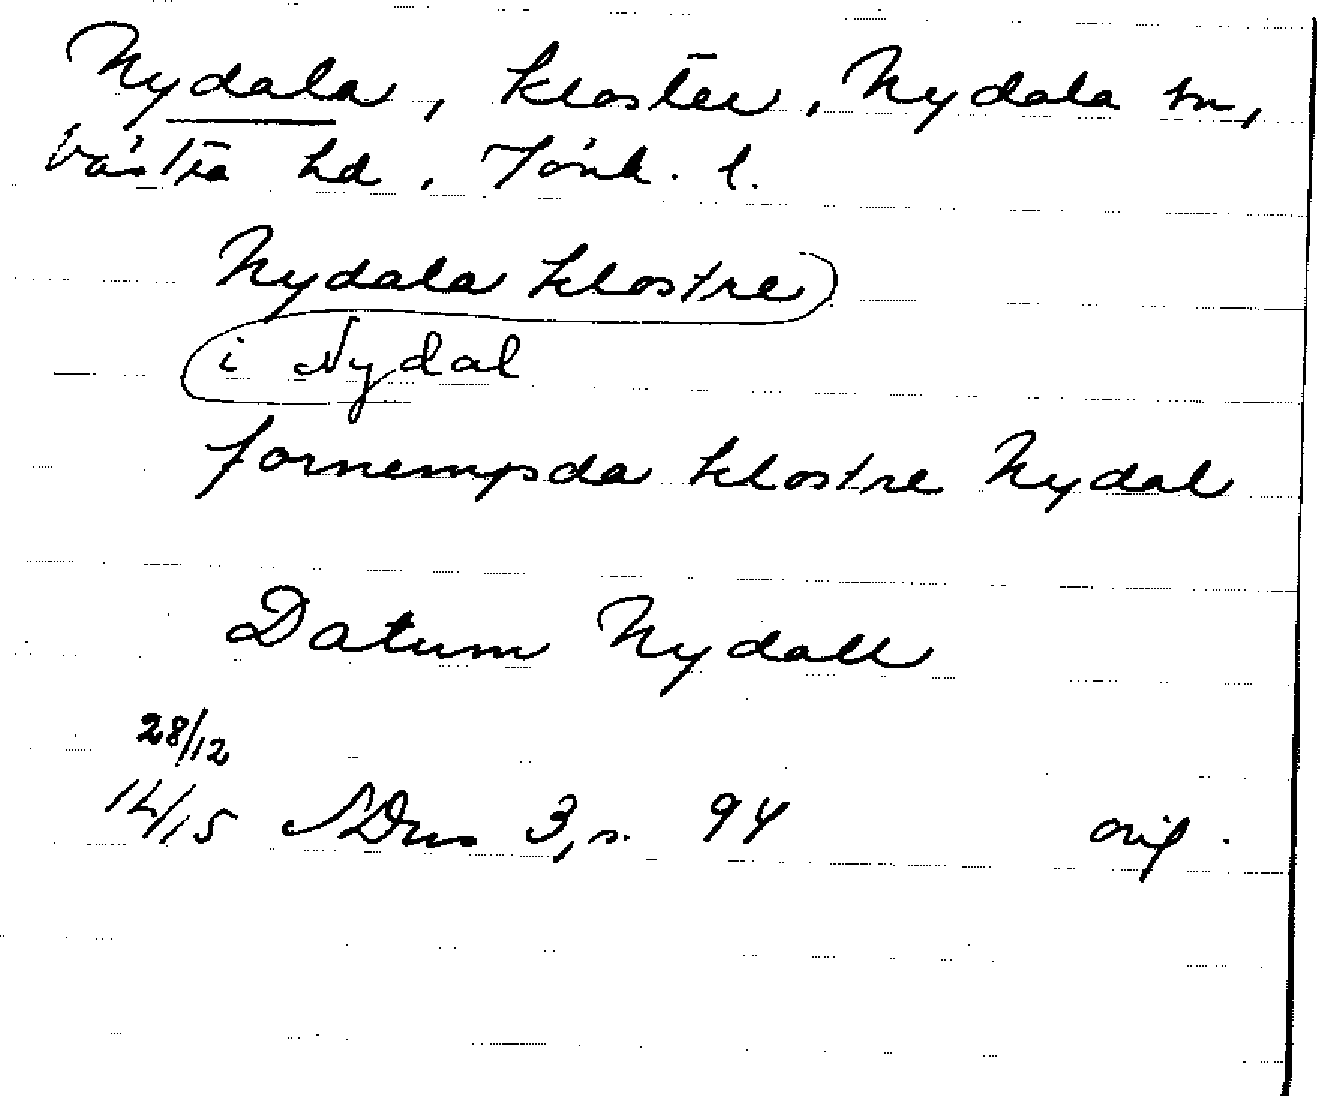 Nydala, kloster, Nydala sn,
Västra hd, Jönk. l.
Nydala klostre
i Nydal
fornempda klostre Nydal
Datum Nydall
28/12
14/15 SDns 3, s. 94 orig.